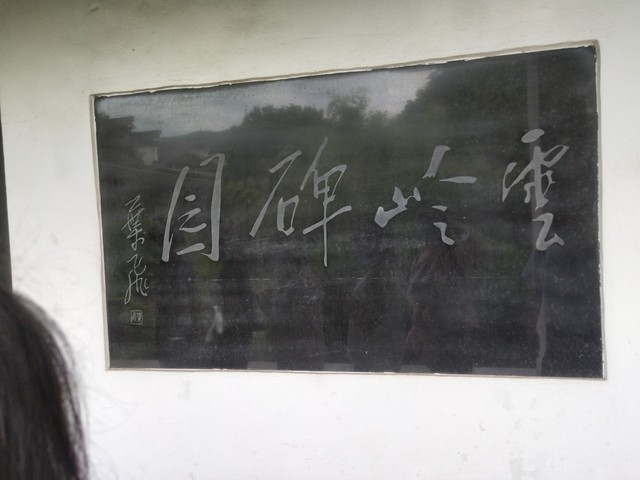 雲岭碑园
葉飞